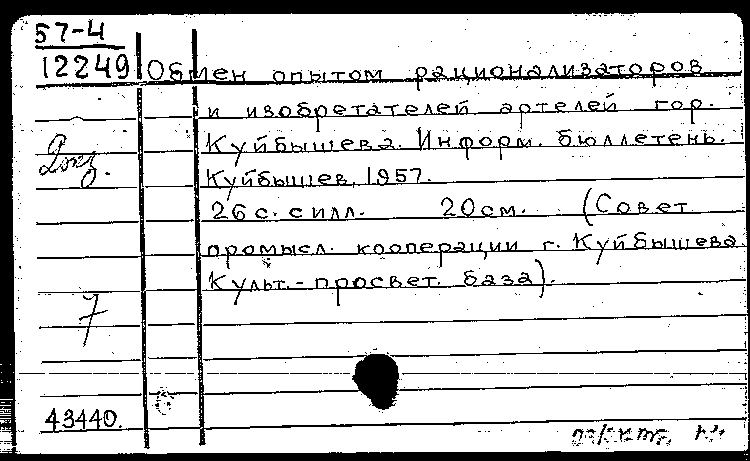 57-4
12249
Обмен опытом рационализаторов
и изобретателей артелей гор.
Куйбышева. Информ. бюллетень.
Куйбышев, 1957.
26 с. с илл. 20 см. (Совет
промысл. кооперации г. Куйбышева
Культ.-просвет. база).
7
43440.